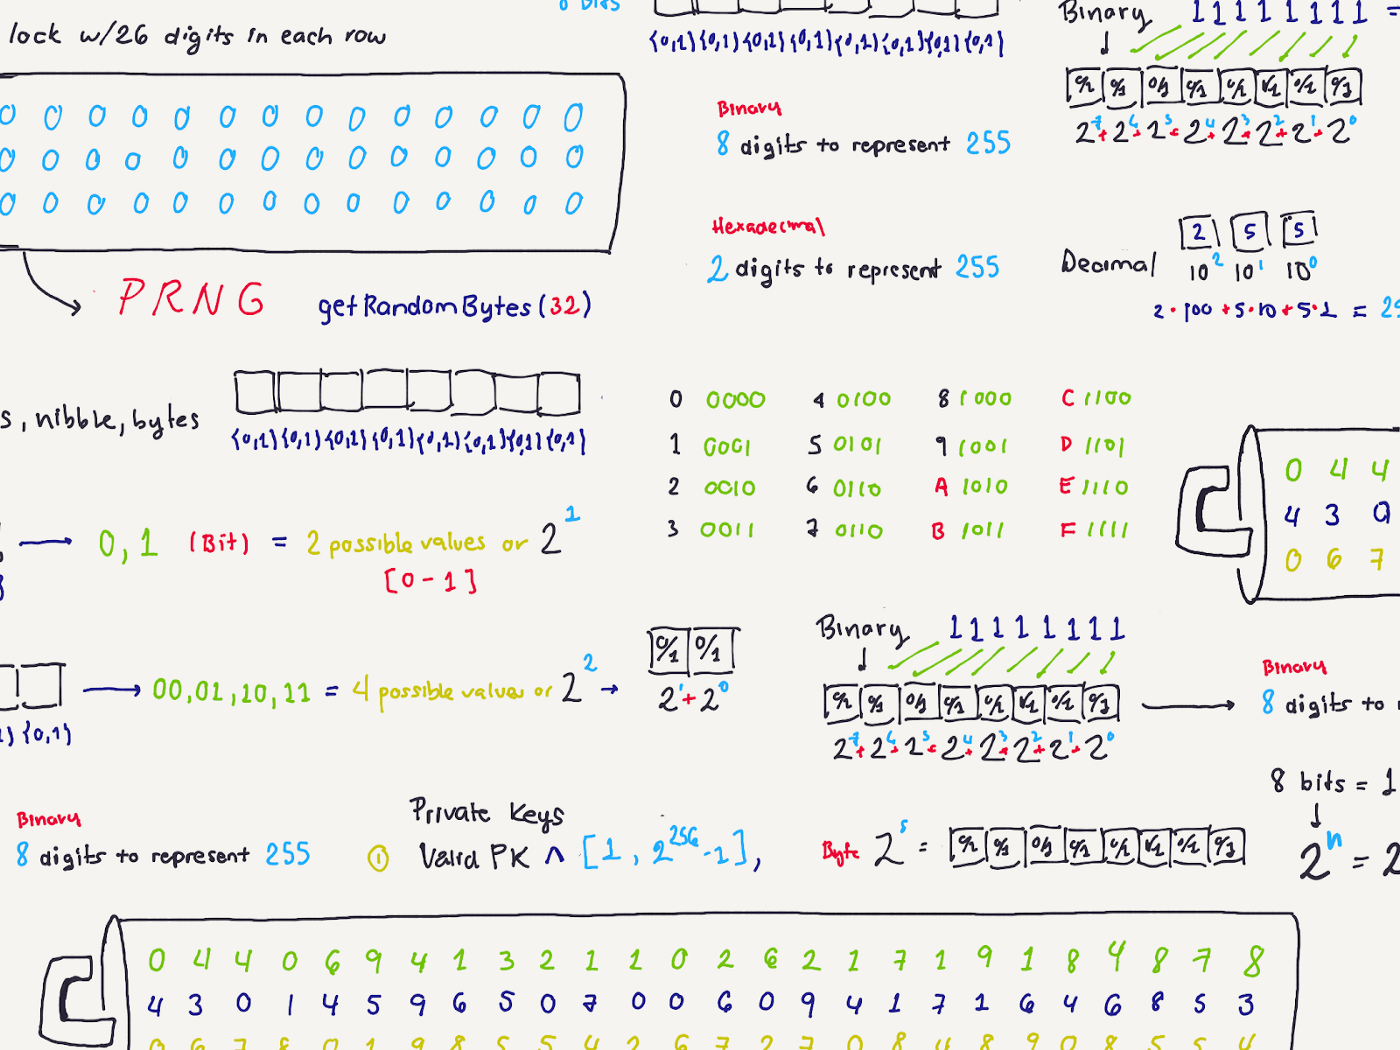 8 bits
lock w/26 digits in each row
0 0 0 0 0 0 0 0 0 0 0 0 0 0
0 0 0 0 0 0 0 0 0 0 0 0 0 0
0 0 0 0 0 0 0 0 0 0 0 0 0 0
PRNG getRandomBytes(32)
{0,1} {0,1} {0,1} {0,1} {0,1} {0,1} {0,1} {0,1}
Binary
8 digits to represent 255
Hexadecimal
2 digits to represent 255
Binary 1 1 1 1 1 1 1 1 =
0/1 0/1 0/1 0/1 0/1 0/1 0/1 0/1
2^7 + 2^6 + 2^5 + 2^4 + 2^3 + 2^2 + 2^1 + 2^0
Decimal 2 5 5
10^2 10^1 10^0
2 · 100 + 5 · 10 + 5 · 1 =
, nibble, bytes
{0,1} {0,1} {0,1} {0,1} {0,1} {0,1} {0,1} {0,1}
0 0000 4 0100 8 1000 C 1100
1 0001 5 0101 9 1001 D 1101
2 0010 6 0110 A 1010 E 1110
3 0011 7 0110 B 1011 F 1111
0 4 4
4 3 0
0 6 7
0,1 (Bit) = 2 possible values or 2^1
[0-1]
00,01,10,11 = 4 possible values or 2^2
{0,1}
0/1 0/1
2^1 + 2^0
Binary 1 1 1 1 1 1 1 1
0/1 0/1 0/1 0/1 0/1 0/1 0/1 0/1
2^7 + 2^6 + 2^5 + 2^4 + 2^3 + 2^2 + 2^1 + 2^0
Binary
8 digits to
Binary
8 digits to represent 255
Private Keys
1 Valid PK ∧ [1, 2^256-1],
Byte 2^5 = 0/1 0/1 0/1 0/1 0/1 0/1 0/1 0/1
8 bits = 1
2^n = 2
0 4 4 0 6 9 4 1 3 2 1 1 0 2 6 2 1 7 1 9 1 8 4 8 7 8
4 3 0 1 4 5 9 6 5 0 7 0 0 6 0 9 4 1 7 1 6 4 6 8 5 3
0 6 7 8 0 1 9 8 5 5 4 2 6 7 2 7 0 8 4 8 9 0 8 5 5 4